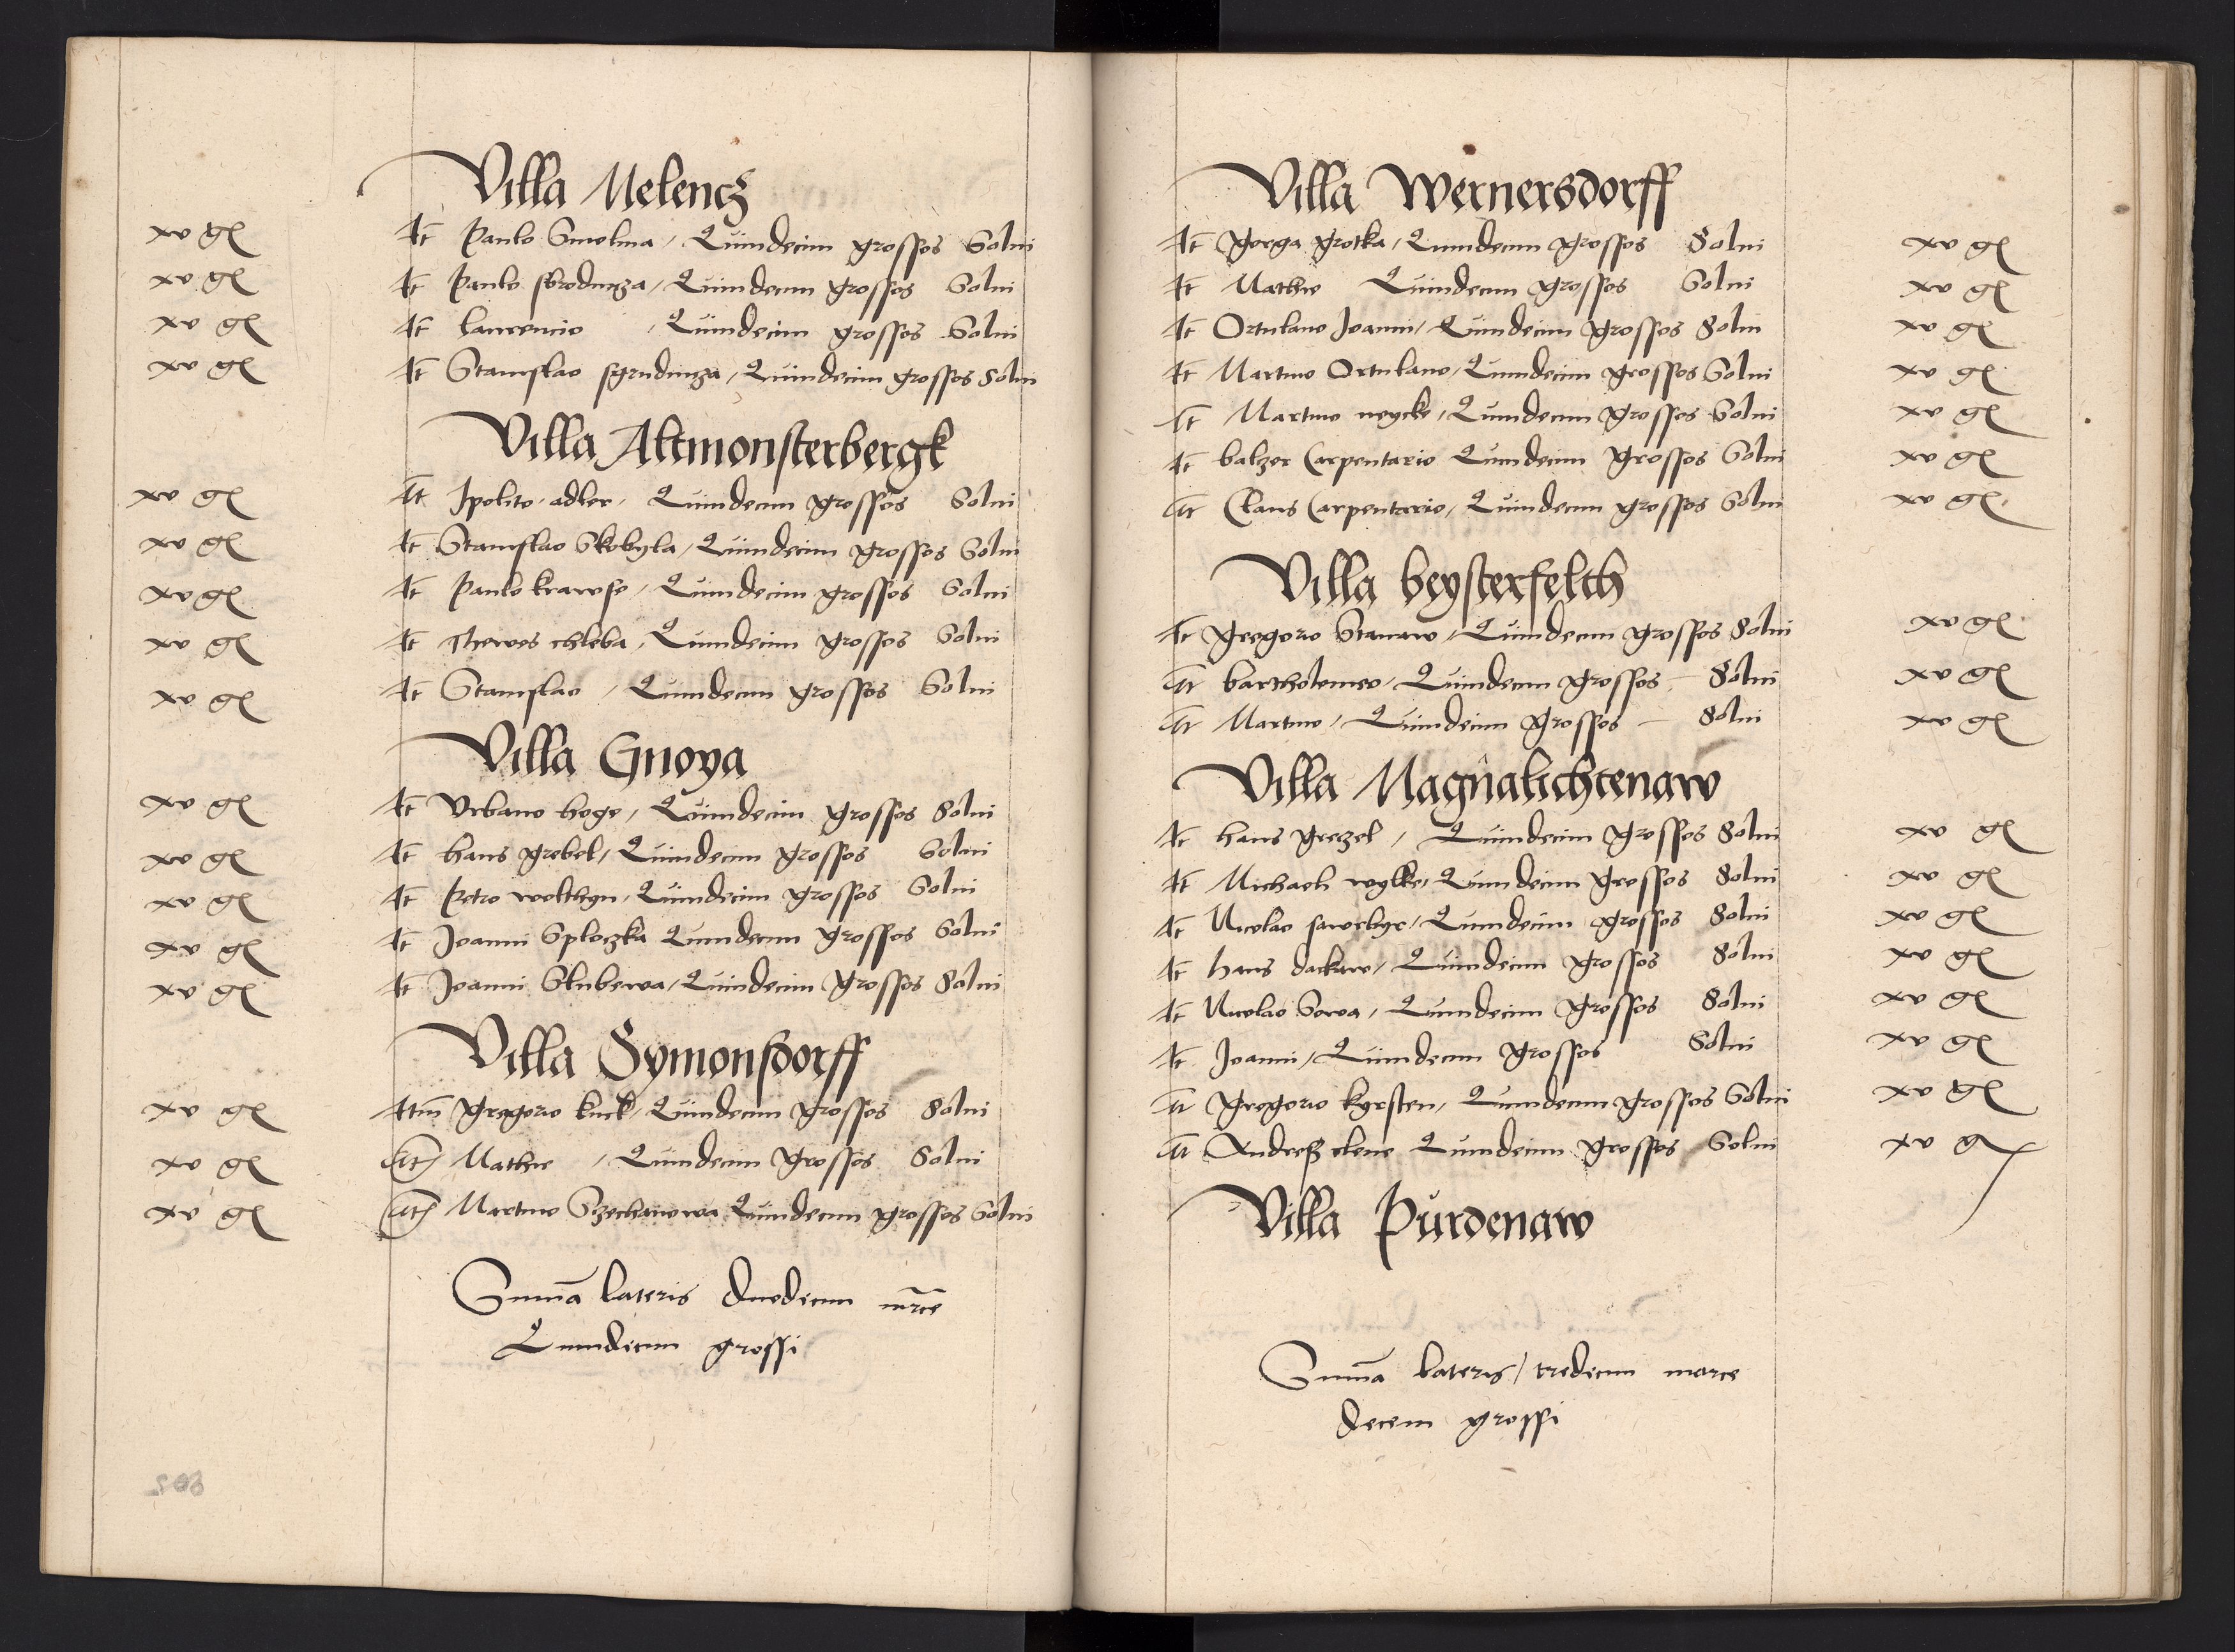 Villa Melencz
xv gl It Paulo Smolina / Quindecim grossos Solui
xv gl It Paulo sbroducza / Quindecim grossos Solui
xv gl It laurencio / Quindecim grossos Solui
xv gl It Stanislao sgrudincza / Quindecim grossos Solui
Villa Altmonsterbergk
xv gl It Ipolito adler / Quindecim grossos Solui
xv gl It Stanislao Skobyla / Quindecim grossos Solui
xv gl It Paulo krawse / Quindecim grossos Solui
xv gl It Thewes chleba / Quindecim grossos Solui
xv gl It Stanislao / Quindecim grossos Solui
Villa Gnoya
xv gl It Vrbano hoge / Quindecim grossos Solui
xv gl It hans grebel / Quindecim grossos Solui
xv gl It Petro welthyn / Quindecim grossos Solui
xv gl It Joanni Sploczka Quindecim grossos Solui
xv gl It Joanni Slubewa / Quindecim grossos Solui
Villa Symonsdorff
xv gl Itm gregorio kuck / Quindecim grossos Solui
xv gl It Mathie / Quindecim grossos Solui
xv gl It Martino Szechanowa Quindecim grossos Solui
Summa lateris duodecim mrce
Quindecim grossi
Villa Wernersdorff
It gorga grotka / Quindecim grossos Solui xv gl
It Mathie Quindecim grossos Solui xv gl
It Ortulano Joanni / Quindecim grossos Solui xv gl
It Martino Ortulano / Quindecim grossos Solui xv gl
It Martino neycke / Quindecim grossos Solui xv gl
It balzer Carpentario Quindecim grossos Solui xv gl
It Claus Carpentario / Quindecim grossos Solui xv gl
Villa beysterfelth
It gregorio Stanaw / Quindecim grossos Solui xv gl
It bartholomeo / Quindecim grossos Solui xv gl
It Martino / Quindecim grossos Solui xv gl
Villa Magnalichtenaw
It hans greczel / Quindecim grossos Solui xv gl
It Michaeli wylke / Quindecim grossos Solui xv gl
It Nicolao / Quindecim grossos Solui xv gl
It hans dackaw / Quindecim grossos Solui xv gl
It Nicolao Sowa / Quindecim grossos Solui xv gl
It Joanni / Quindecim grossos Solui xv gl
It gregorio kyrsten / Quindecim grossos Solui xv gl
It Andreß clene Quindecim grossos Solui xv gl
Villa Purdenaw
Summa lateris / tredecim marce
decem grossi